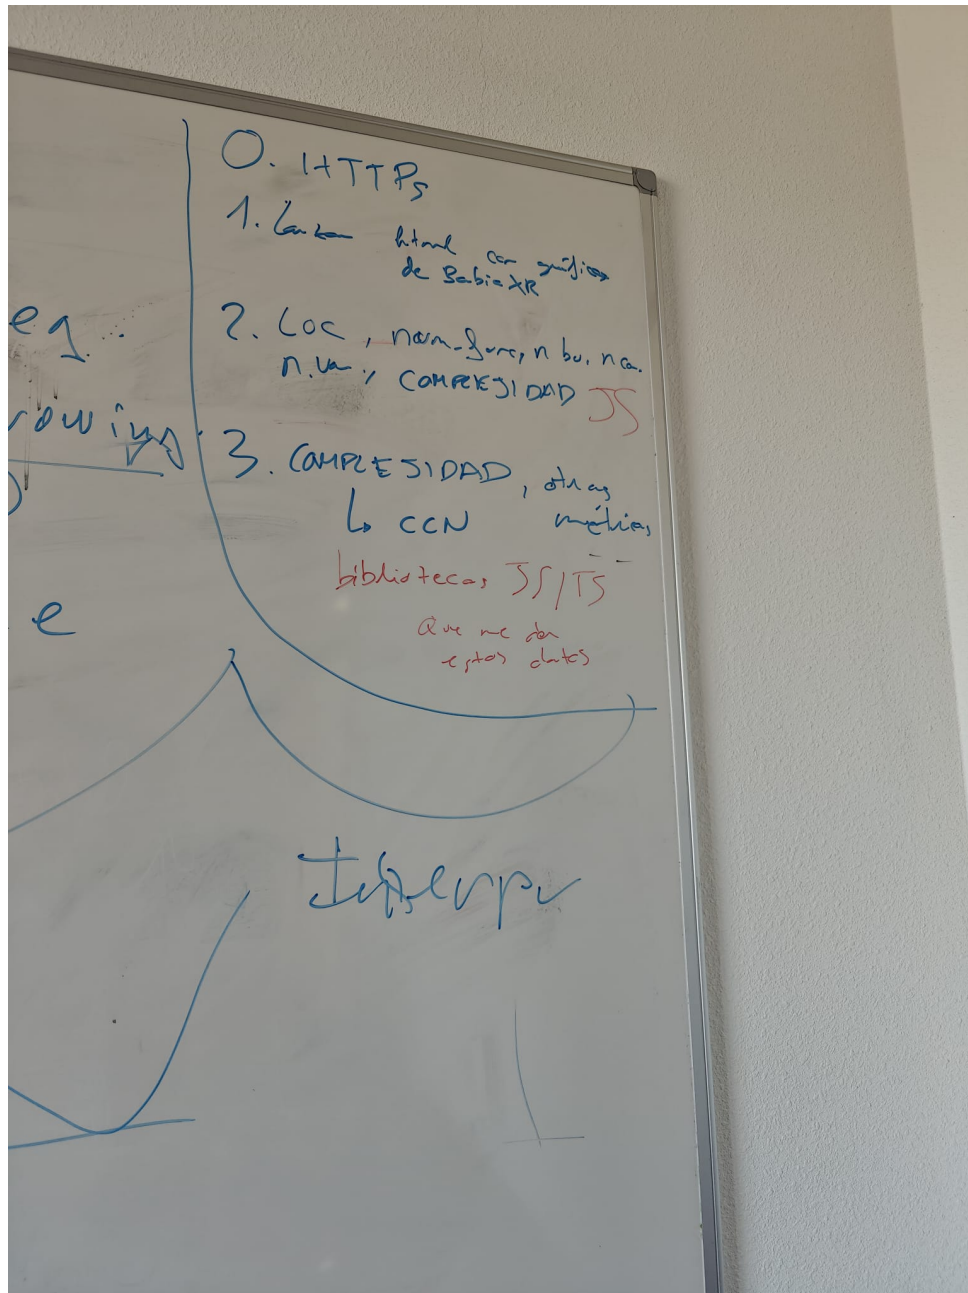 0. HTTPs
1. Lanzar html con gráficos
de BabiaXR
2. LOC, num_func, n bu. n ca.
n. va., COMPLEJIDAD JS
3. COMPLEJIDAD, otras
↳ CCN métricas
bibliotecas JS/TS
Que me dan
estos datos
eq.
rowing
e